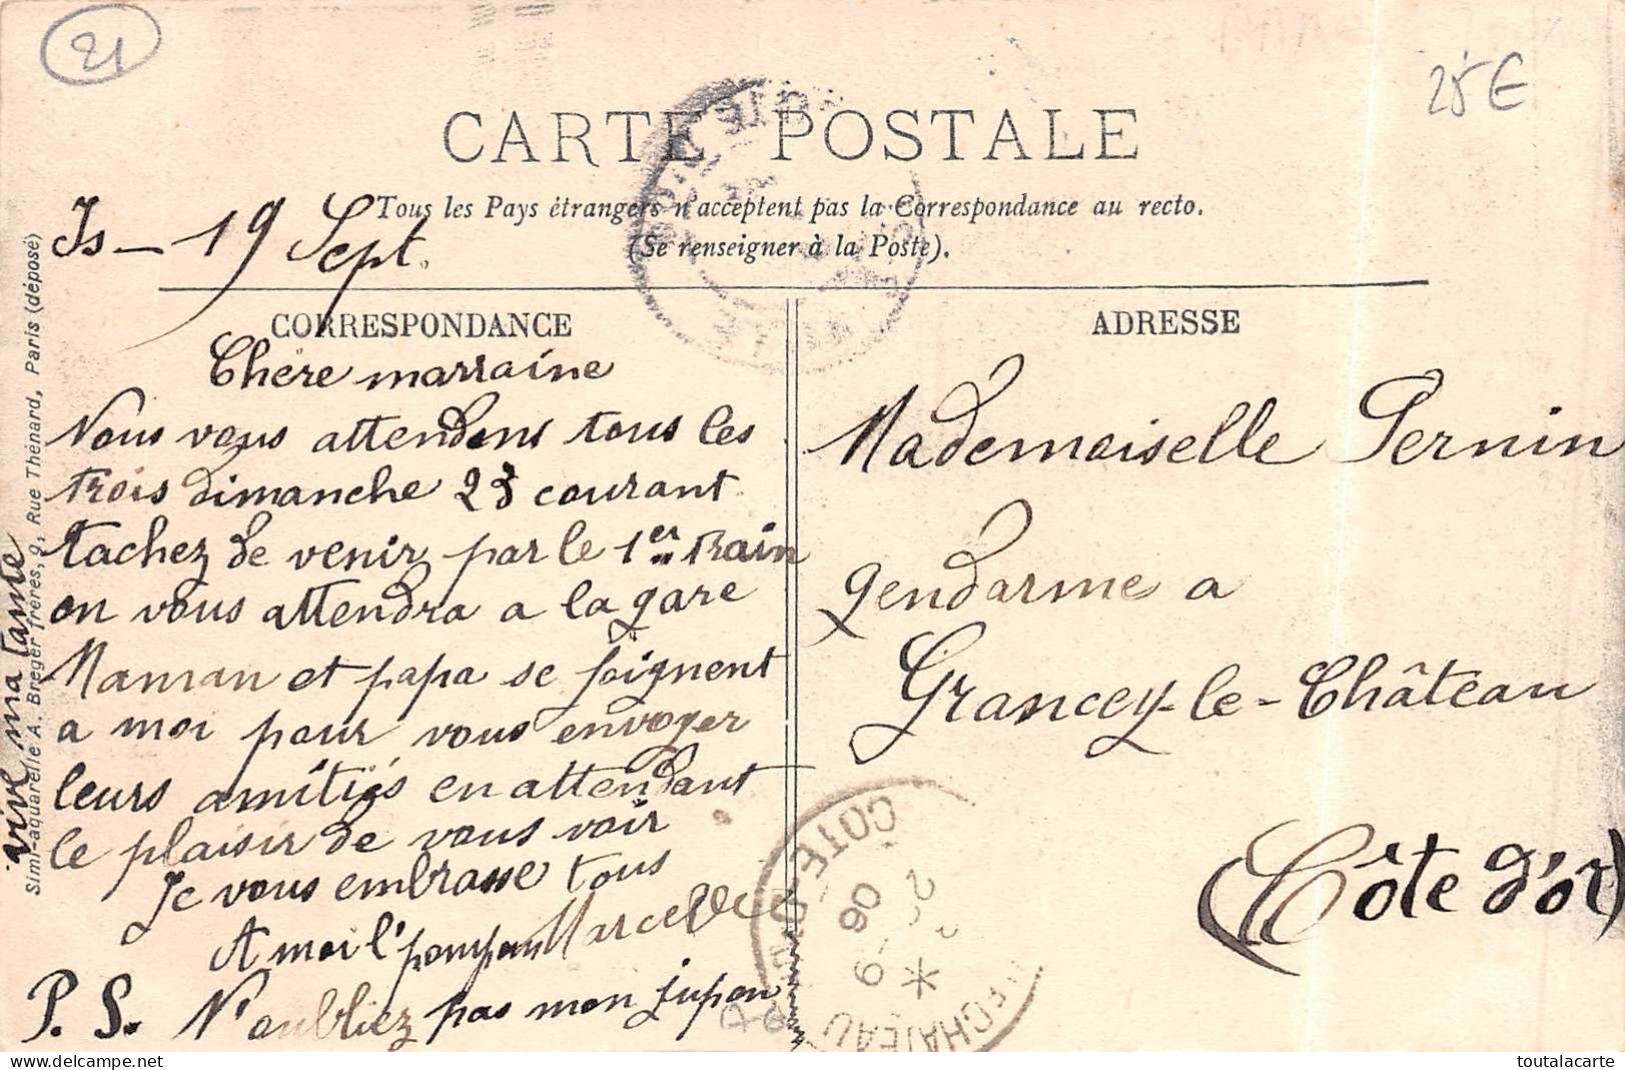 21
25 €
CARTE POSTALE
Tous les Pays étrangers n'acceptent pas la Correspondance au recto.
(Se renseigner à la Poste).
Is - 19 Sept.
CORRESPONDANCE
Chère marraine
Nous vous attendons tous les
trois dimanche 23 courant
tachez de venir par le 1er train
on vous attendra a la gare
Maman et papa se joignent
a moi pour vous envoyer
leurs amitiés en attendant
le plaisir de vous voir
Je vous embrasse tous
Marcelle
A moi l'pompon
P. S. N'oubliez pas mon jupon
vive ma tante
Simi-aquarelle A. Breger frères, 9, Rue Thénard, Paris (déposé)
ADRESSE
Mademoiselle Pernin
gendarme a
Grancey-le-Château
(Côte d'or)
COTE D'OR
06
toutalacarte